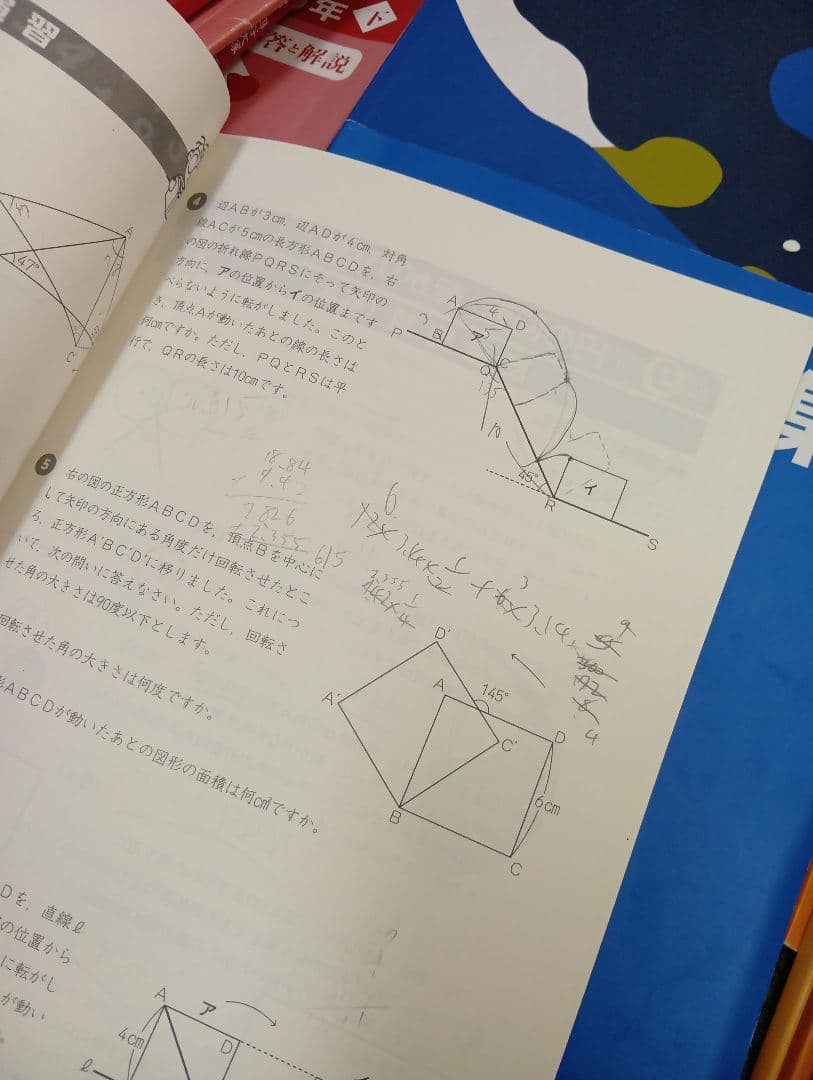 習
年
下
答と解説
47°
A
C
4
辺ABが3cm，辺ADが4cm，対角
線ACが5cmの長方形ABCDを，右
の図の折れ線PQRSにそって矢印の
方向に，アの位置からイの位置まですべ
らないように転がしました。このと
き，頂点Aが動いたあとの線の長さは
何cmですか。ただし，PQとRSは平
行で，QRの長さは10cmです。
A
4
D
3
P
B
ア
C
Q
135
10
45°
イ
R
S
18.84
9.42
7.826
2.355
615
6
5
右の図の正方形ABCDを，頂点Bを中心に
して矢印の方向にある角度だけ回転させたとこ
ろ，正方形A'B'C'D'に移りました。これにつ
いて，次の問いに答えなさい。ただし，回転さ
せた角の大きさは90度以下とします。
回転させた角の大きさは何度ですか。
ABCDが動いたあとの図形の面積は何cm²ですか。
D'
A
145°
A'
D
C'
6cm
B
C
Dを，直線ℓ
の位置から
に転がし
が動い
A
ア
4cm
D
ℓ